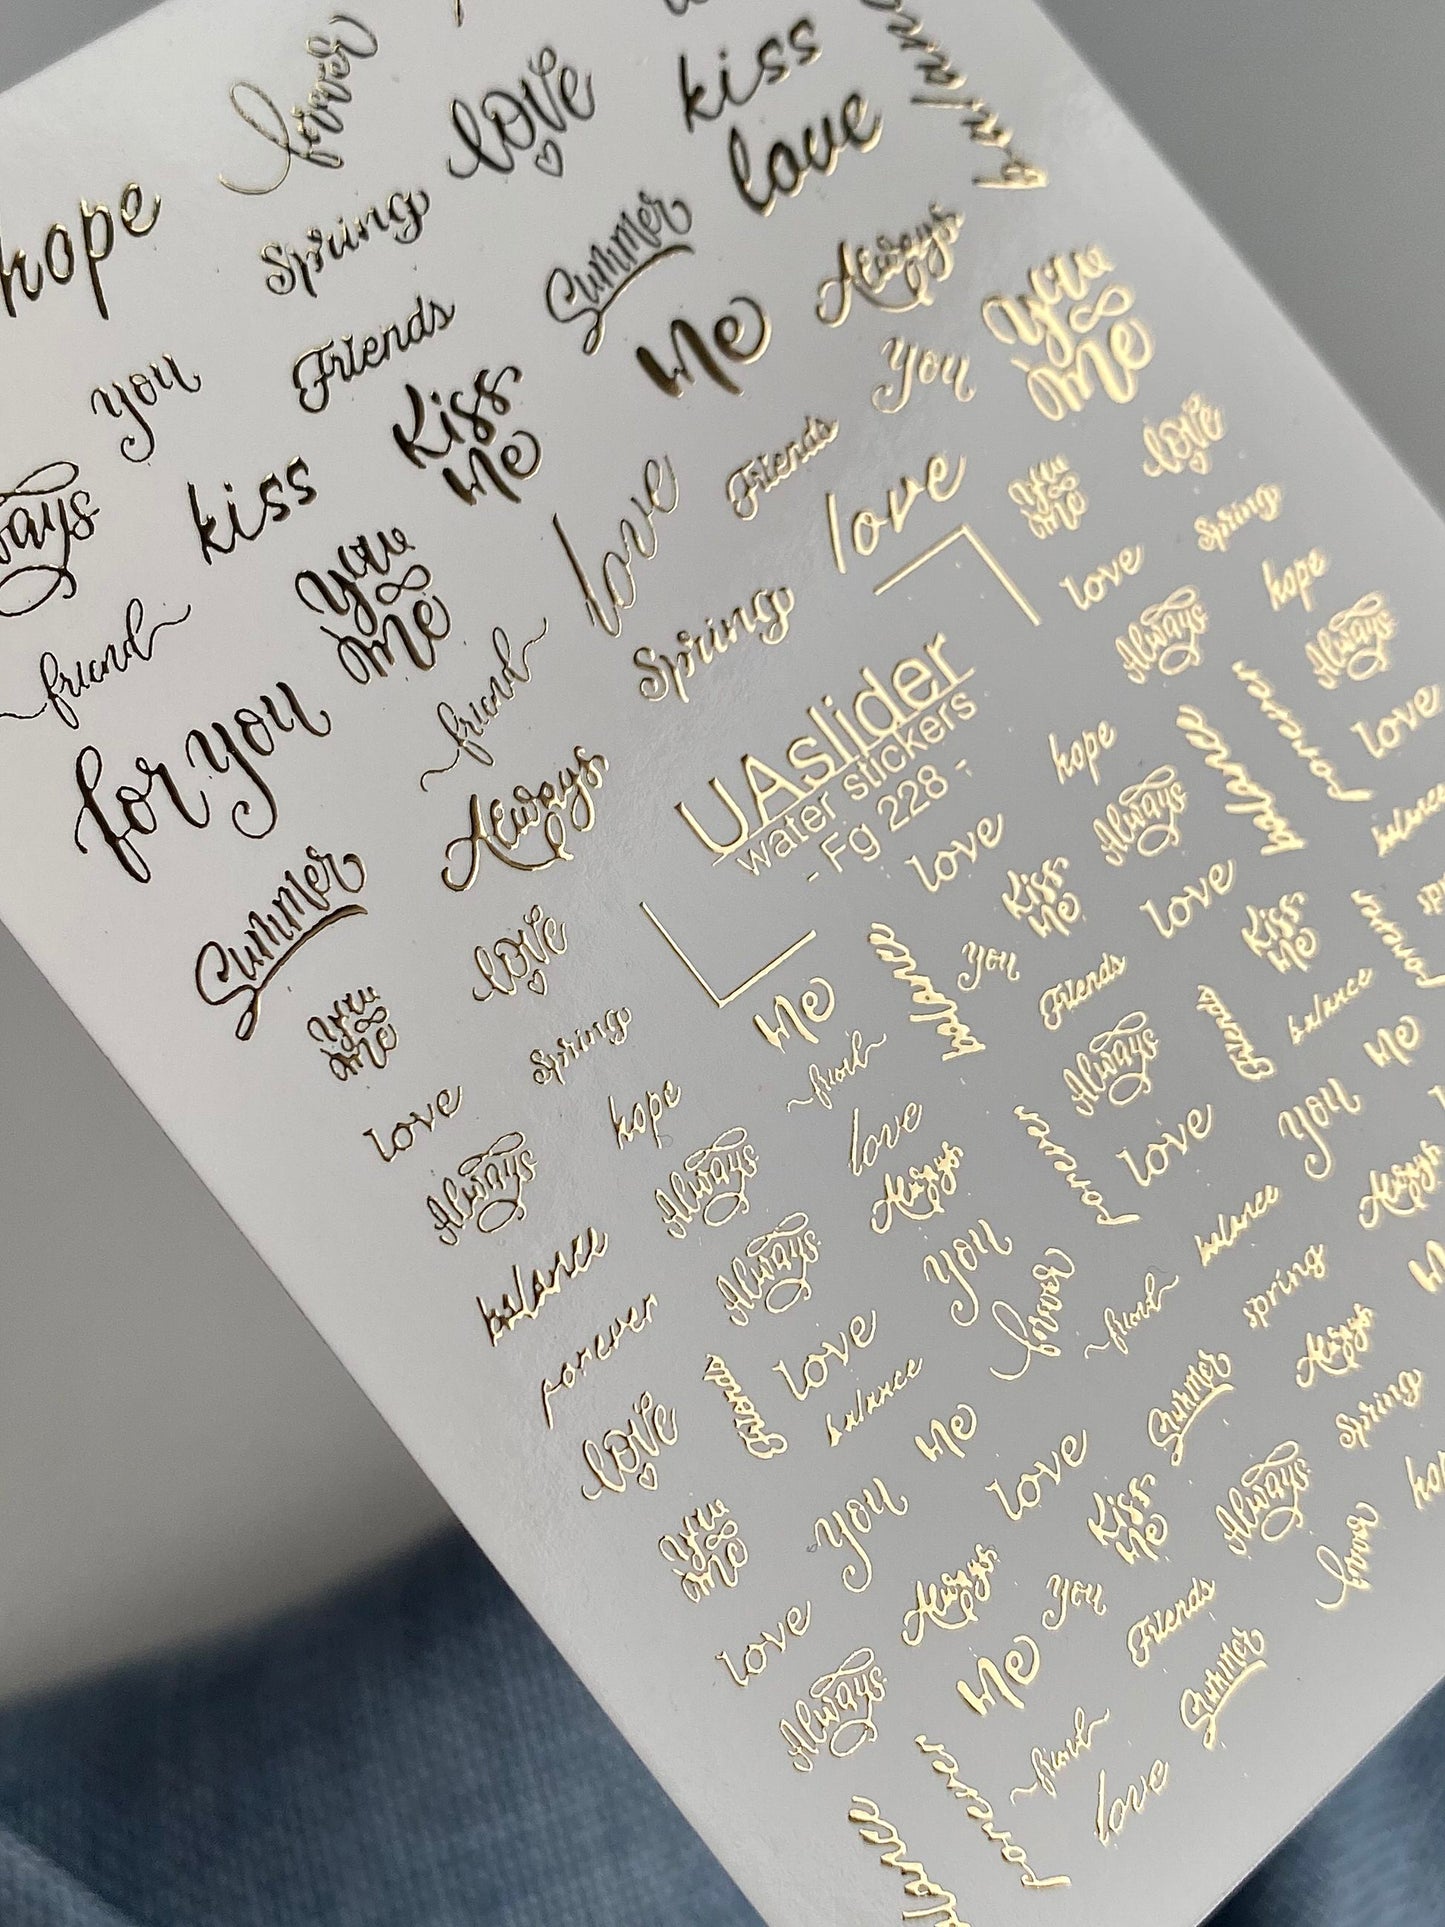 forever
love
kiss
love
balance
hope
Spring
Summer
Always
You
Me
you
Friends
Me
You
Kiss
Me
kiss
Friends
love
love
You
Me
love
Spring
You
Me
friend
friend
Spring
love
hope
for you
Always
Always
Always
UAslider
water stickers
- Fg 228 -
hope
balance
forever
love
Summer
love
love
Always
Kiss
Me
love
balance
Me
balance
You
Kiss
Me
forever
You
Me
Spring
friend
Friends
Friends
balance
love
hope
love
Always
Me
Always
Always
Always
forever
love
You
Always
balance
Always
You
forever
friend
balance
spring
Me
forever
Friends
love
balance
Summer
Always
love
Me
love
Spring
You
Me
You
Kiss
Me
Always
forever
love
Always
You
Friends
Always
Me
Summer
forever
friend
love
balance